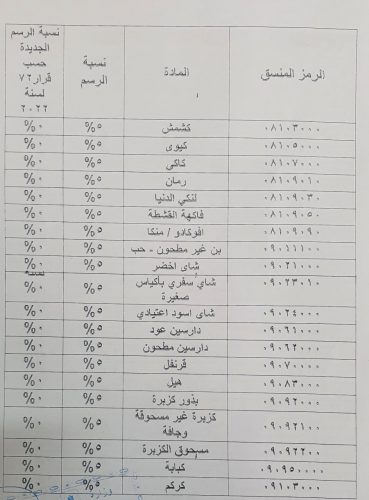 الرمز المنسق | المادة | نسبة الرسم | نسبة الرسم الجديدة حسب قرار ٧٢ لسنة ٢٠٢٢
٠٨١٠٣٠٠٠ | كشمش | ٥% | ٠%
٠٨١٠٥٠٠٠ | كيوى | ٥% | ٠%
٠٨١٠٧٠٠٠ | كاكي | ٥% | ٠%
٠٨١٠٩٠١٠ | رمان | ٥% | ٠%
٠٨١٠٩٠٣٠ | لنكي الدنيا | ٥% | ٠%
٠٨١٠٩٠٥٠ | فاكهة القشطة | ٥% | ٠%
٠٨١٠٩٠٩٠ | افوكادو / منكا | ٥% | ٠%
٠٩٠١١١٠٠ | بن غير مطحون - حب | ٥% | ٠%
٠٩٠٢١٠٠٠ | شاي اخضر | ٥% | ٠%
٠٩٠٢٣٠١٠ | شاي سفري بأكياس صغيرة | ٥% | ٠%
٠٩٠٢٤٠٠٠ | شاى اسود اعتيادي | ٥% | ٠%
٠٩٠٦١٠٠٠ | دارسين عود | ٥% | ٠%
٠٩٠٦٢٠٠٠ | دارسين مطحون | ٥% | ٠%
٠٩٠٧٠٠٠٠ | قرنفل | ٥% | ٠%
٠٩٠٨٣٠٠٠ | هيل | ٥% | ٠%
٠٩٠٩٢٠٠٠ | بذور كزبرة | ٥% | ٠%
٠٩٠٩٢١٠٠ | كزبرة غير مسحوقة وجافة | ٥% | ٠%
٠٩٠٩٢٢٠٠ | مسحوق الكزبرة | ٥% | ٠%
٠٩٠٩٥٠٠٠٠ | كبابة | ٥% | ٠%
٠٩١٠٣٠٠٠ | كركم | ٥% | ٠%